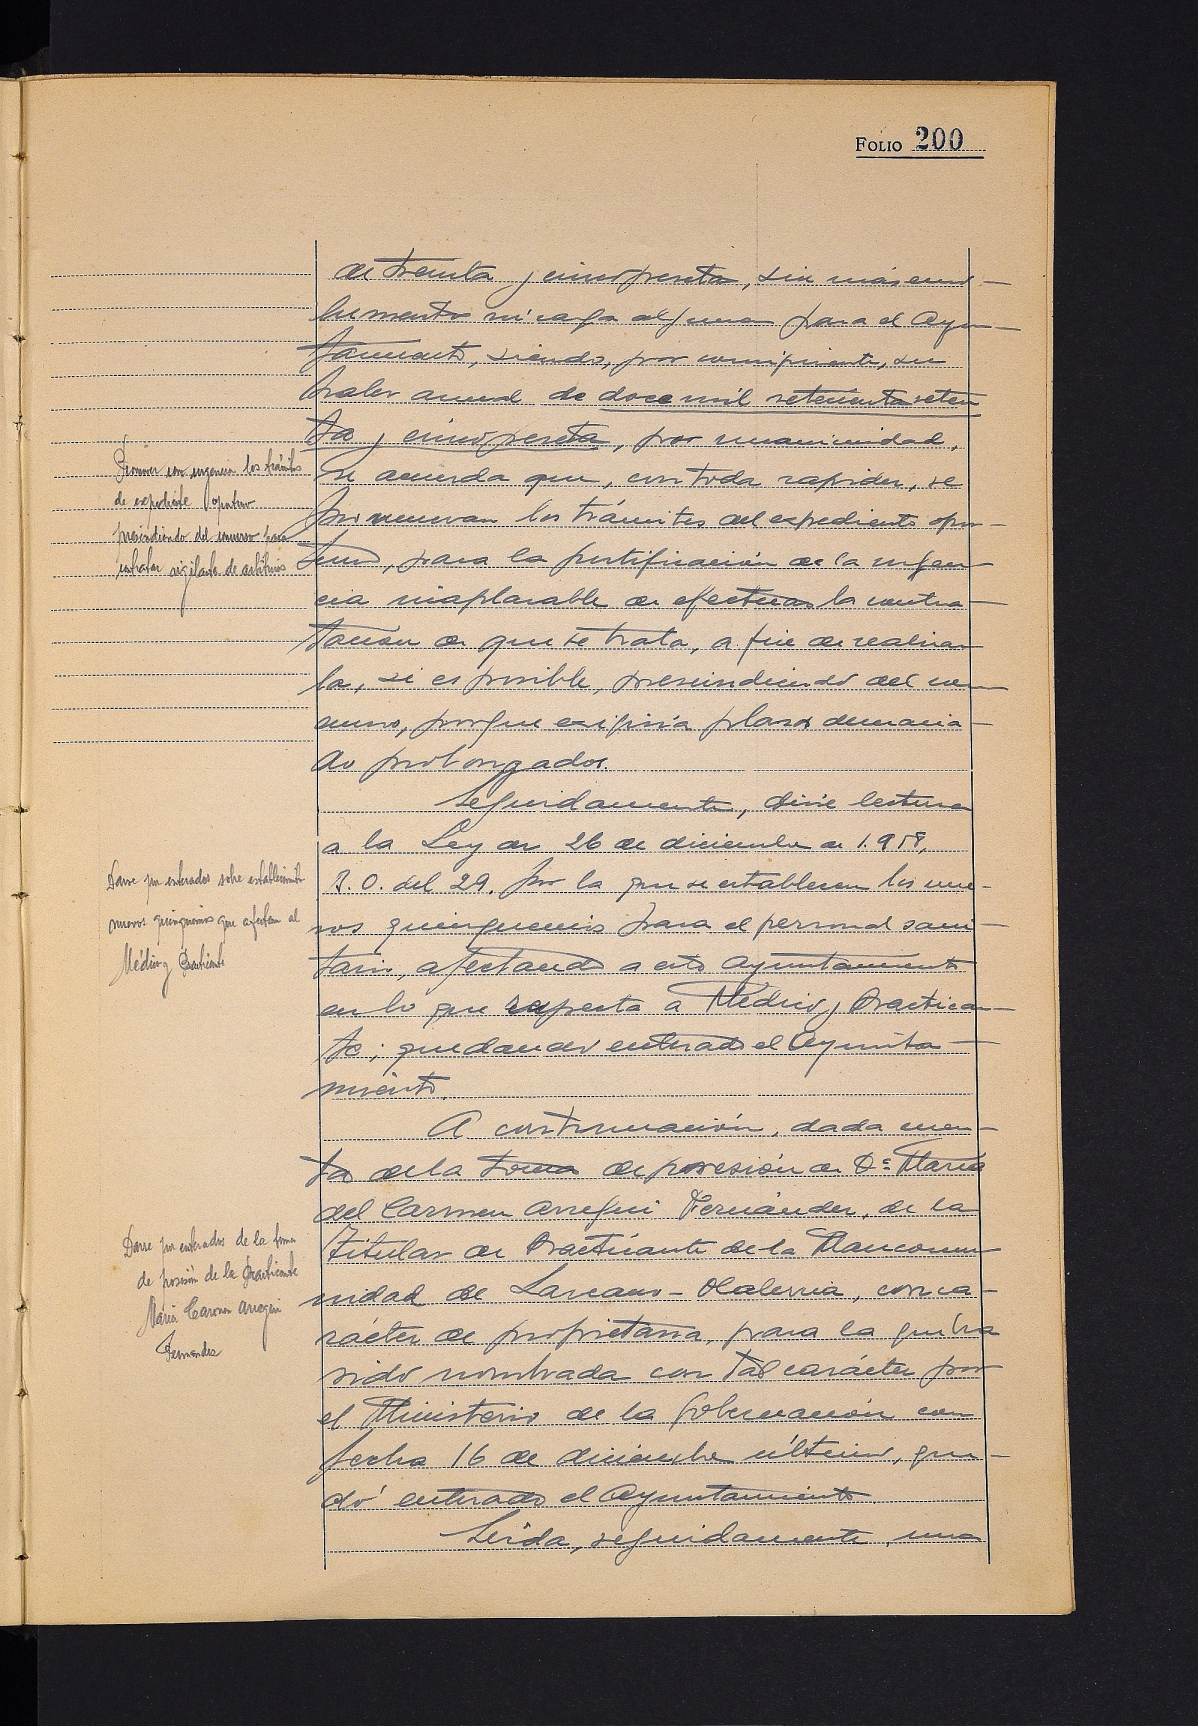 FOLIO 200
de treinta y cinco pesetas, sin más emo-
lumentos ni carga alguna para el Ayun-
tamiento, siendo, por consiguiente, su
haber anual de doce mil setecientas seten
ta y cinco pesetas, por unanimidad,
se acuerda que, con toda rapidez, se
promuevan los trámites del expediente opor-
tuno, para la justificación de la urgen-
cia inaplazable de efectuar la contra-
tación de que se trata, a fin de realizar
la, si es posible, prescindiendo del con-
curso, porque exigiría plazos demasia-
do prolongados.
Seguidamente, dióse lectura
a la Ley de 26 de diciembre de 1.958,
B.O. del 29. por la que se establecen los nue-
vos quinquenios para el personal sani-
tario, afectando a este Ayuntamiento
en lo que respecta a Médico y Practican-
te; quedando enterado el Ayunta-
miento.
A continuación, dada cuen-
ta de la toma de posesión de Dª María
del Carmen Arregui Fernández, de la
Titular de Practicante de la Mancomu-
nidad de Lazcano-Olaberria, con ca-
rácter de propietaria, para la que ha
sido nombrada con tal carácter por
el Ministerio de la Gobernación con
fecha 16 de diciembre último, que-
dó enterado el Ayuntamiento.
Leída, seguidamente, una
Promover con urgencia los trámites
de expediente oportuno
prescindiendo del concurso para
contratar vigilante de arbitrios
Darse por enterados sobre establecimiento
nuevos quinquenios que afectan al
Médico y Practicante
Darse por enterados de la toma
de posesión de la Practicante
María Carmen Arregui
Fernández